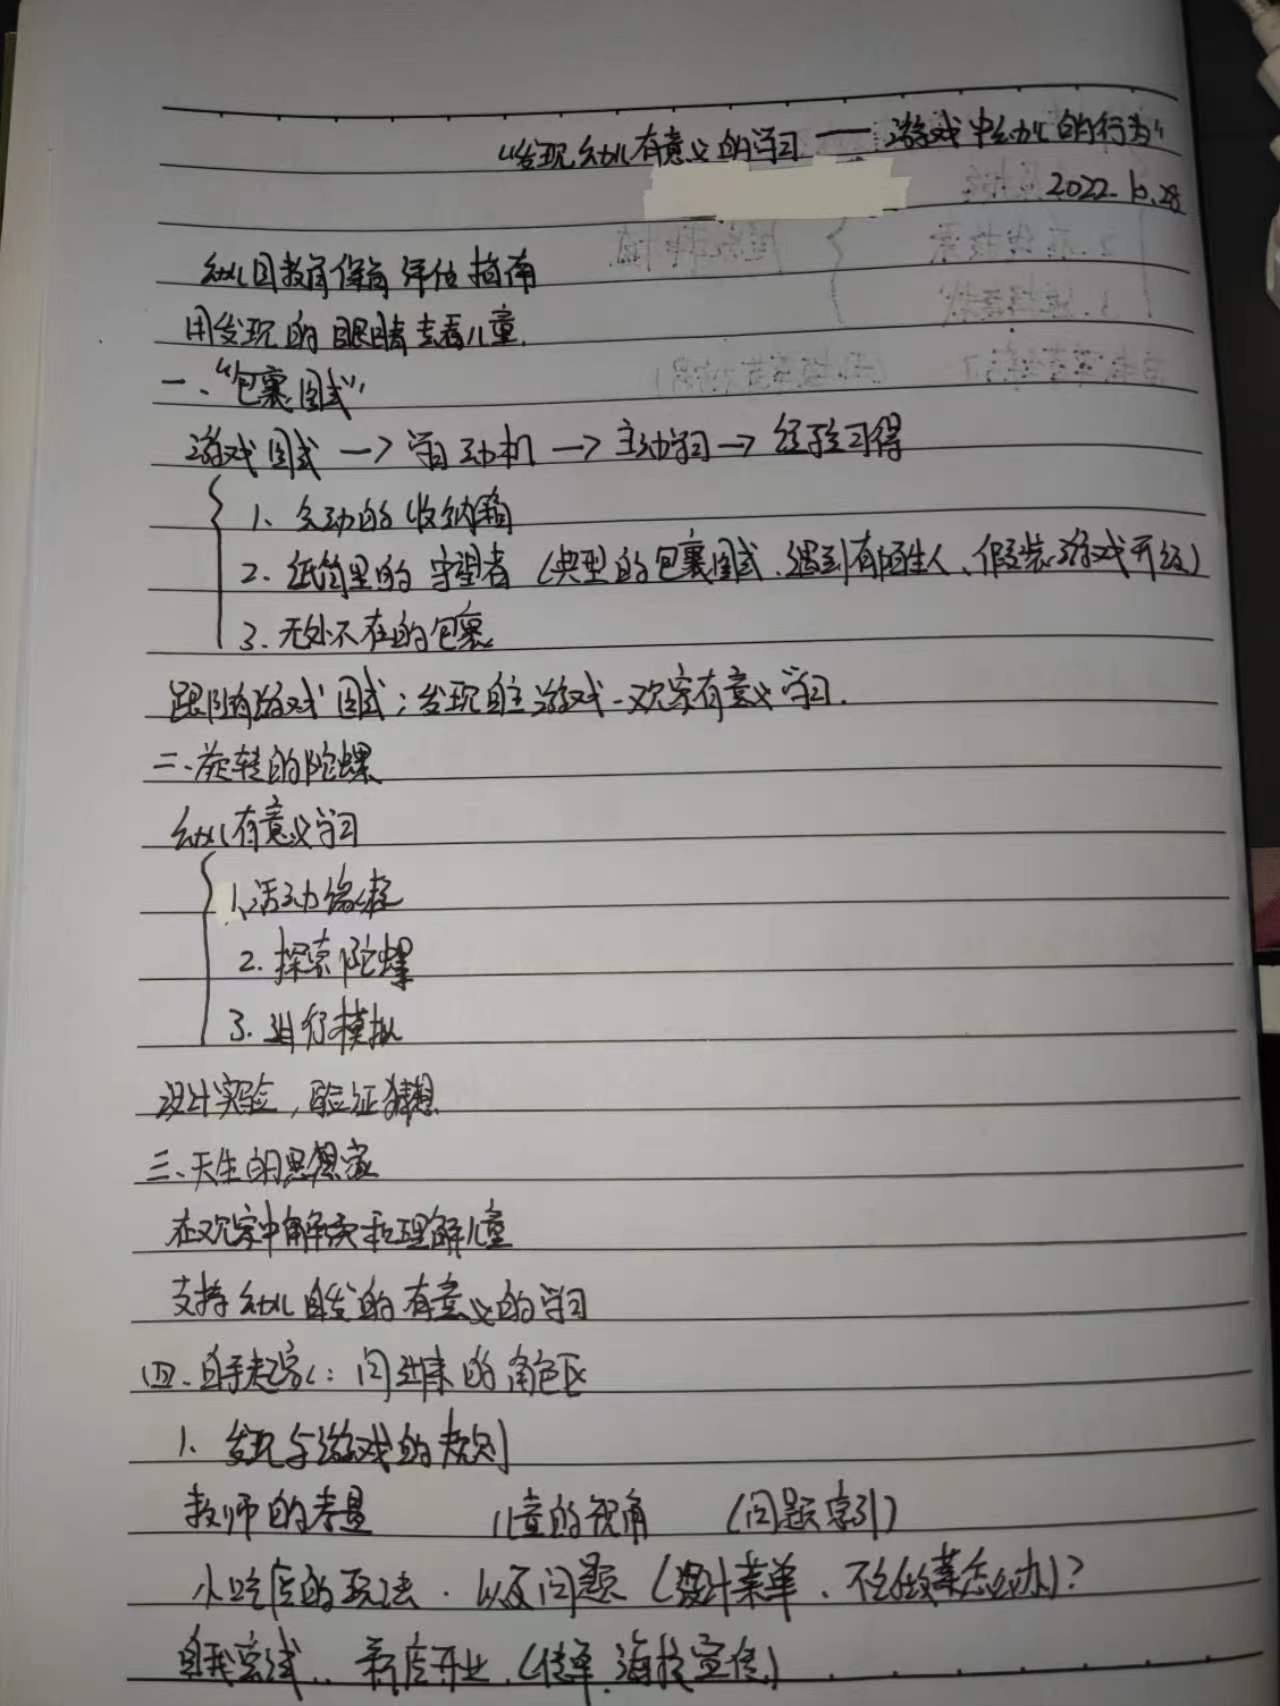 “发现幼儿有意义的学习——游戏中幼儿的行为”
2022.10.28
幼儿园教育保育评估指南
用发现的眼睛去看儿童.
一、“包裹图式”
游戏图式→学习动机→主动学习→经验习得
1、会动的收纳箱
2.纸筒里的守望者(典型的包裹图式、遇到有陌生人、假装游戏升级)
3.无处不在的包裹
跟随游戏图式;发现自主游戏-观察有意义学习.
二、旋转的陀螺
幼儿有意义学习
1、活动缘起
2.探索陀螺
3.进行模拟
设计实验,验证猜想
三、天生的思想家
在观察中解读和理解儿童
支持幼儿自发的有意义的学习
四、自 的角色区
1、发现与游戏的规则
教师的考量 儿童的视角 (问题索引)
小吃店的玩法.以及问题(设计菜单、不会做菜怎么办)?
自我尝试..新店开业.(传单.海报宣传)